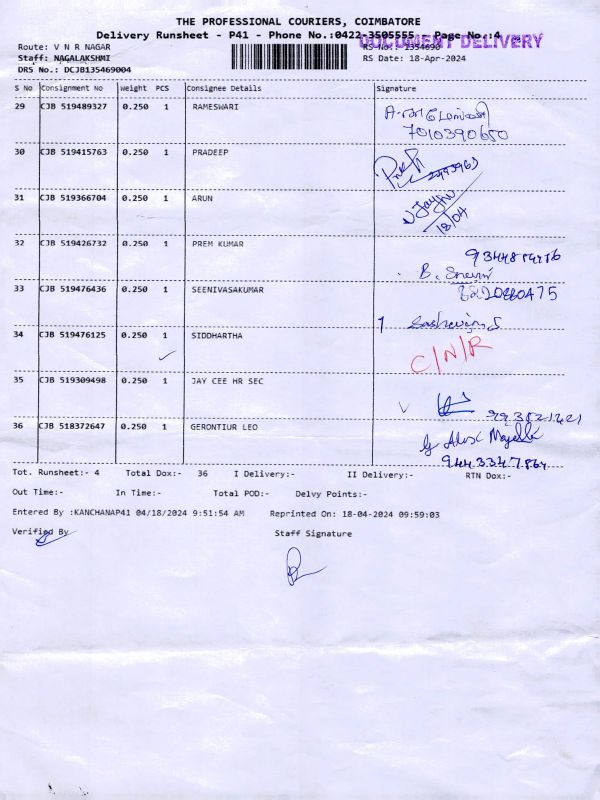 THE PROFESSIONAL COURIERS, COIMBATORE
Delivery Runsheet - P41 - Phone No.:0422-3505555 - Page No.:4
DOCUMENT DELIVERY
Route: V N R NAGAR RS No.: 1354690
Staff: NAGALAKSHMI RS Date: 18-Apr-2024
DRS No.: DCJB135469004
S No Consignment No Weight PCS Consignee Details Signature
29 CJB 519489327 0.250 1 RAMESWARI
7010390650
30 CJB 519415763 0.250 1 PRADEEP
31 CJB 519366704 0.250 1 ARUN
18/04
32 CJB 519426732 0.250 1 PREM KUMAR
B.
33 CJB 519476436 0.250 1 SEENIVASAKUMAR
34 CJB 519476125 0.250 1 SIDDHARTHA
C/N/R
35 CJB 519309498 0.250 1 JAY CEE HR SEC
36 CJB 518372647 0.250 1 GERONTIUR LEO
Tot. Runsheet:- 4 Total Dox:- 36 I Delivery:- II Delivery:- RTN Dox:-
Out Time:- In Time:- Total POD:- Delvy Points:-
Entered By :KANCHANAP41 04/18/2024 9:51:54 AM Reprinted On: 18-04-2024 09:59:03
Verified By Staff Signature